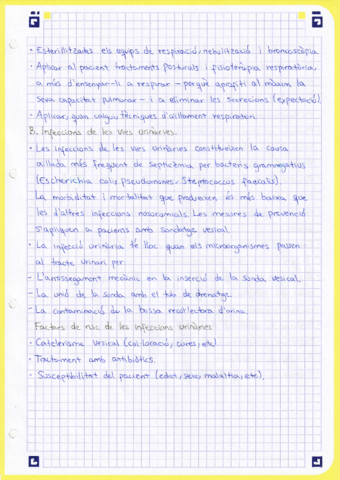 · Esterilitzades els equips de respiració, nebulització i broncoscòpia
· Aplicar al pacient tractaments posturals i fisioteràpia respiratòria,
a més d'ensenyar-li a respirar - perquè aprofiti al màxim la
seva capacitat pulmonar - i a eliminar les secrecions (expectoració).
· Aplicar, quan calgui, tècniques d'aïllament respiratori.
B. Infeccions de les vies urinàries.
· Les infeccions de les vies urinàries constitueixen la causa
aïllada més freqüent de septicèmia per bacteris gramnegatius
(Escherichia coli, pseudomones, Streptococcus faecalis).
La morbiditat i mortalitat que produeixen és més baixa que
les d'altres infeccions nosocomials. Les mesures de prevenció
s'apliquen a pacients amb sondatge vesical.
· La infecció urinària té lloc quan els microorganismes passen
al tracte urinari per:
- L'arrossegament mecànic en la inserció de la sonda vesical.
- La unió de la sonda amb el tub de drenatge.
- La contaminació de la bossa recol·lectora d'orina.
Factors de risc de les infeccions urinàries
· Cateterisme vesical (col·locació, cures, etc)
· Tractament amb antibiòtics.
· Susceptibilitat del pacient (edat, sexe, malaltia, etc).